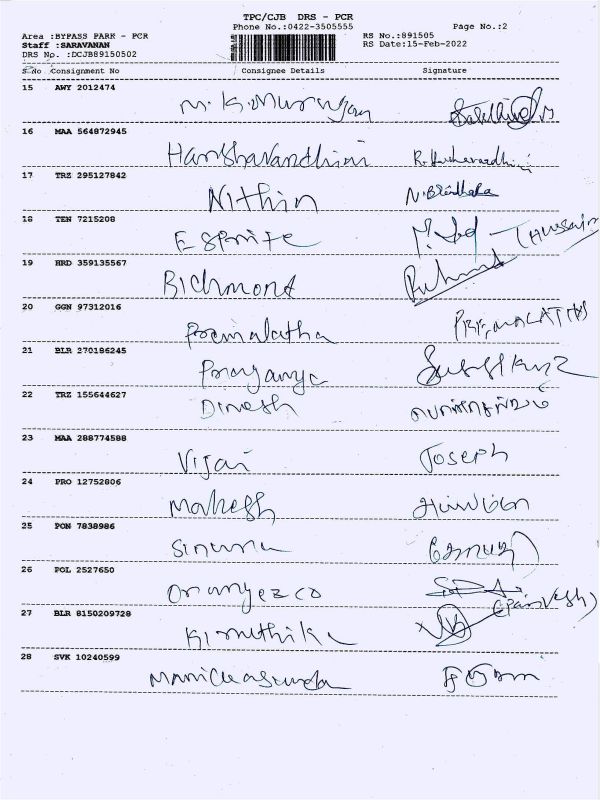 TPC/CJB DRS - PCR
Phone No.:0422-3505555
Page No.:2
Area :BYPASS PARK - PCR
RS No.:891505
Staff :SARAVANAN
RS Date:15-Feb-2022
DRS No. :DCJB89150502
S.No Consignment No Consignee Details Signature
15 AWY 2012474 M.K.Murugan
16 MAA 564872945 Harshavandhini R.Harshavardhini
17 TRZ 295127842 Nithin N.Brindha
18 TEN 7215208 Esprite (Hussain
19 HRD 359135567 Richmond
20 GGN 97312016 Premalatha PREMALATHA
21 BLR 270186245
22 TRZ 155644627 Dinesh
23 MAA 288774588 Vijai Joseph
24 PRO 12752806 Mahesh
25 PON 7838986
26 POL 2527650 Orangezco
27 BLR 8150209728 Kiruthika (Parvesh)
28 SVK 10240599